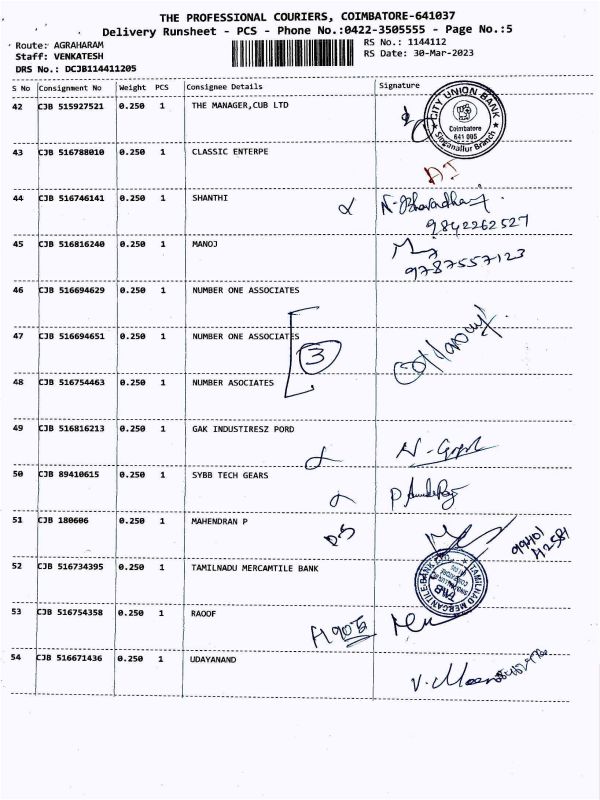 THE PROFESSIONAL COURIERS, COIMBATORE-641037
Delivery Runsheet - PCS - Phone No.:0422-3505555 - Page No.:5
Route: AGRAHARAM
RS No.: 1144112
Staff: VENKATESH
RS Date: 30-Mar-2023
DRS No.: DCJB114411205
S No Consignment No Weight PCS Consignee Details Signature
42 CJB 515927521 0.250 1 THE MANAGER,CUB LTD
CITY UNION BANK
Coimbatore
641 005
Singanallur Branch
43 CJB 516788010 0.250 1 CLASSIC ENTERPE
44 CJB 516746141 0.250 1 SHANTHI
9842262527
45 CJB 516816240 0.250 1 MANOJ
9787557123
46 CJB 516694629 0.250 1 NUMBER ONE ASSOCIATES
47 CJB 516694651 0.250 1 NUMBER ONE ASSOCIATES
3
48 CJB 516754463 0.250 1 NUMBER ASOCIATES
49 CJB 516816213 0.250 1 GAK INDUSTIRESZ PORD
50 CJB 89410615 0.250 1 SYBB TECH GEARS
51 CJB 180606 0.250 1 MAHENDRAN P
52 CJB 516734395 0.250 1 TAMILNADU MERCAMTILE BANK
TAMILNAD MERCANTILE BANK
TMB
53 CJB 516754358 0.250 1 RAOOF
54 CJB 516671436 0.250 1 UDAYANAND